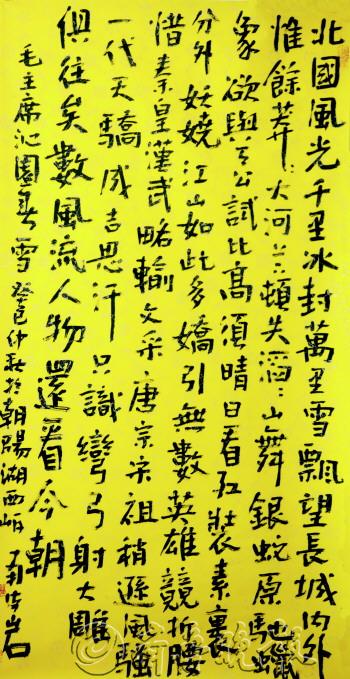 北國風光千里冰封萬里雪飄望長城内外
惟餘莽〻大河上下頓失滔〻山舞銀蛇原馳蠟
象欲與天公試比高須晴日看紅裝素裹
分外妖嬈江山如此多嬌引無數英雄競折腰
惜秦皇漢武略輸文采唐宗宋祖稍遜風騷
一代天驕成吉思汗只識彎弓射大雕
俱往矣數風流人物還看今朝
毛主席沁園春雪癸巳仲秋於朝陽湖西岸
岩